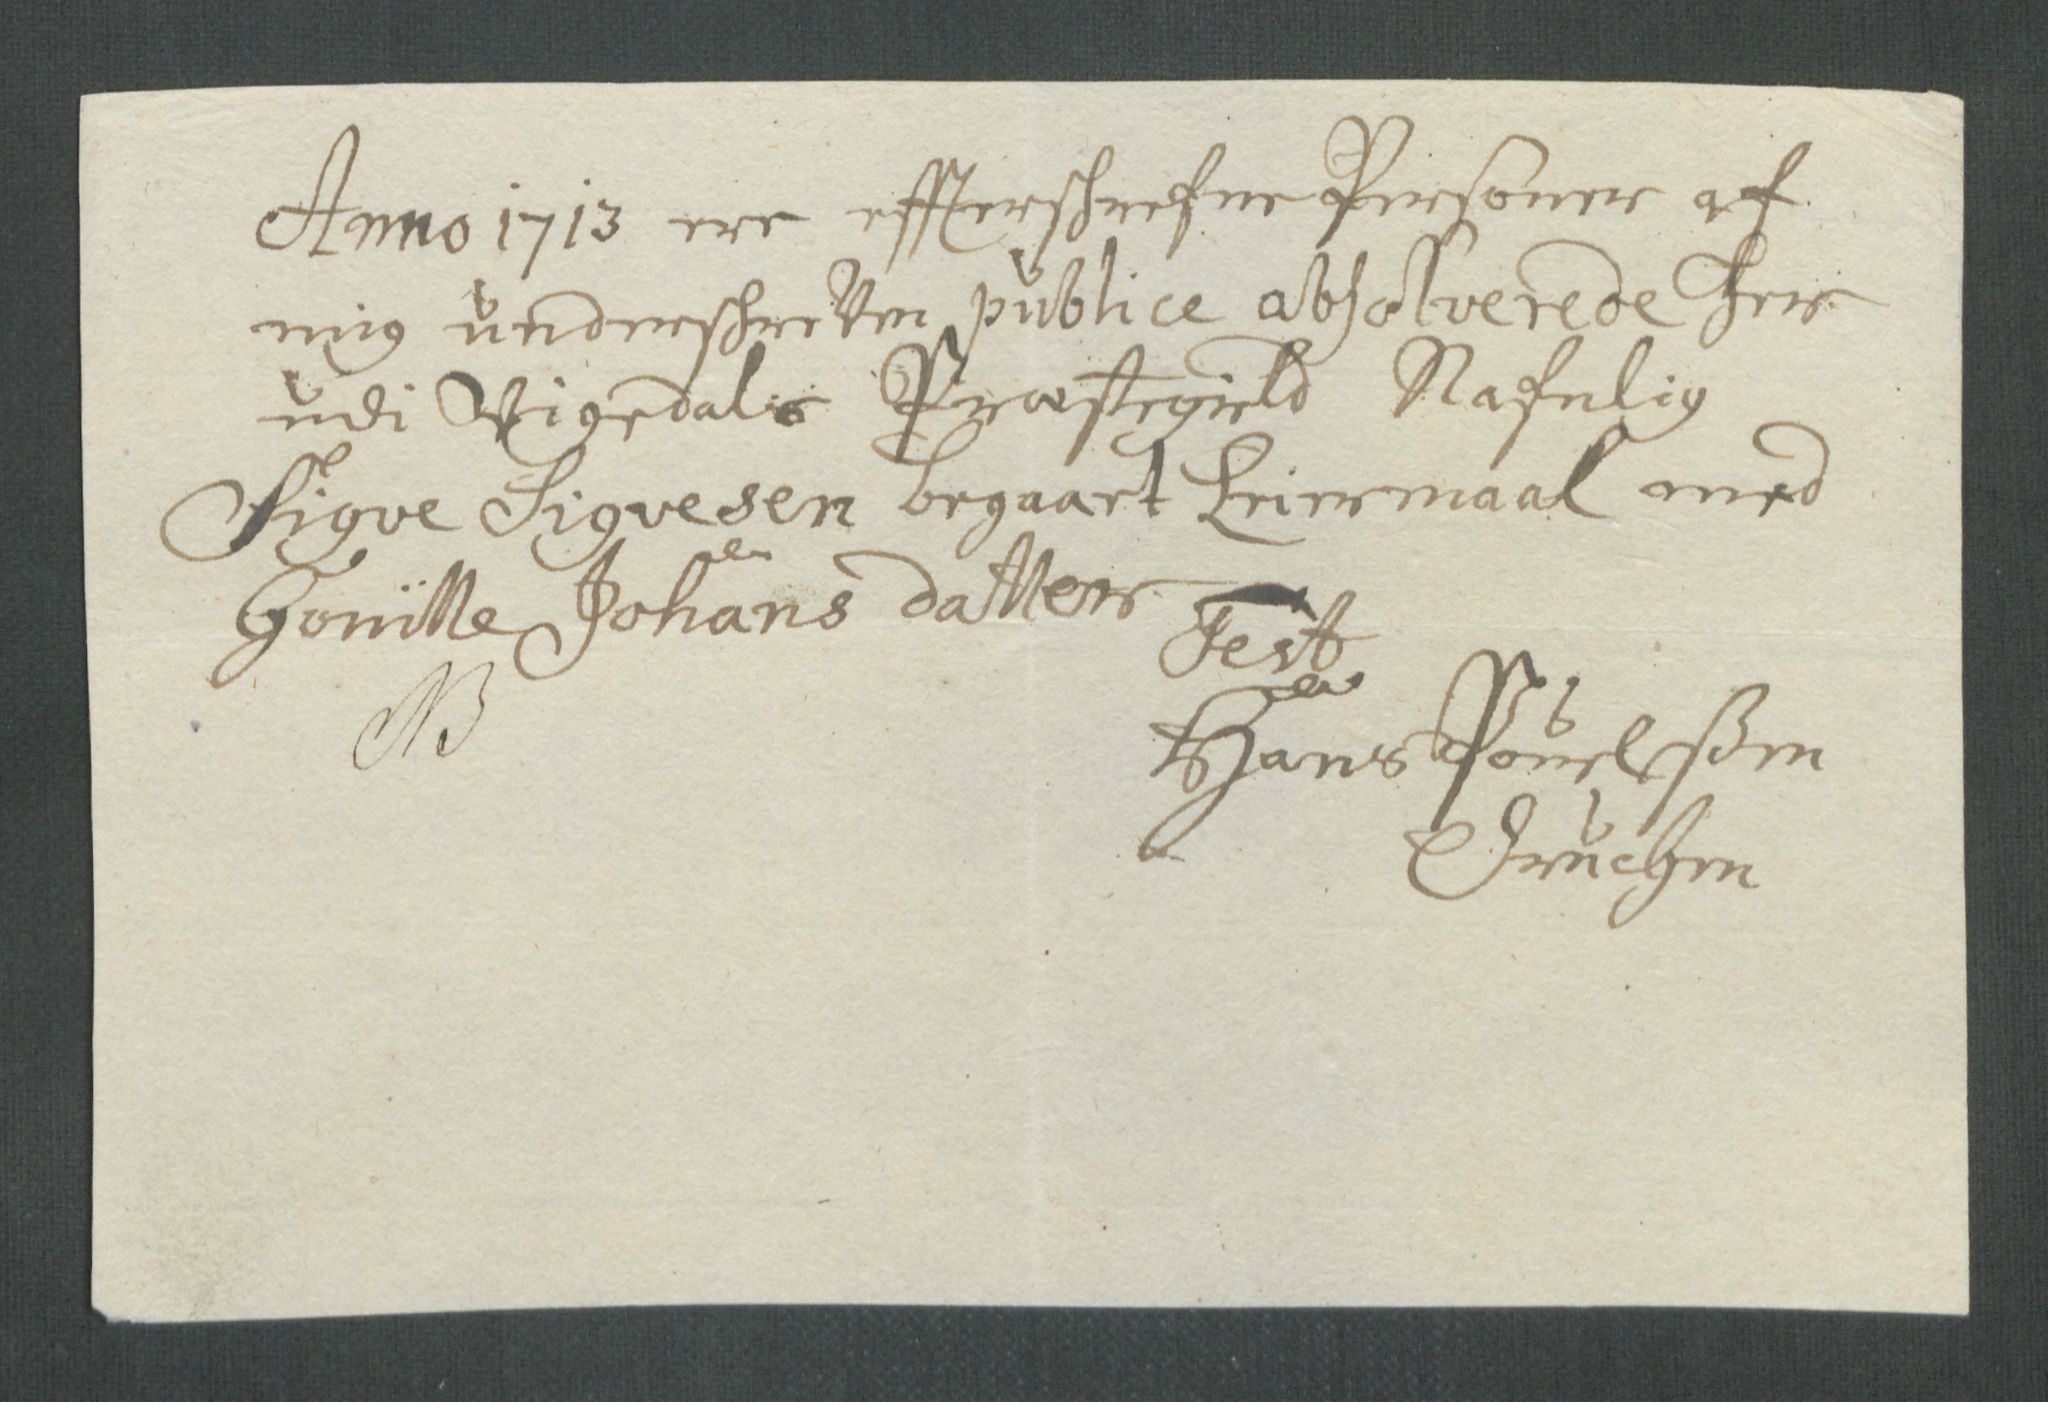 Anno 1713 ere effterschrefne Persohner af
mig underschreven publice absolverede her
udi Vigedals Præstegield Nafnlig
Sigve Sigvesen begaaet Leiermaal med
Gonille Johans datter
Test
NB
Hans Pouelssen